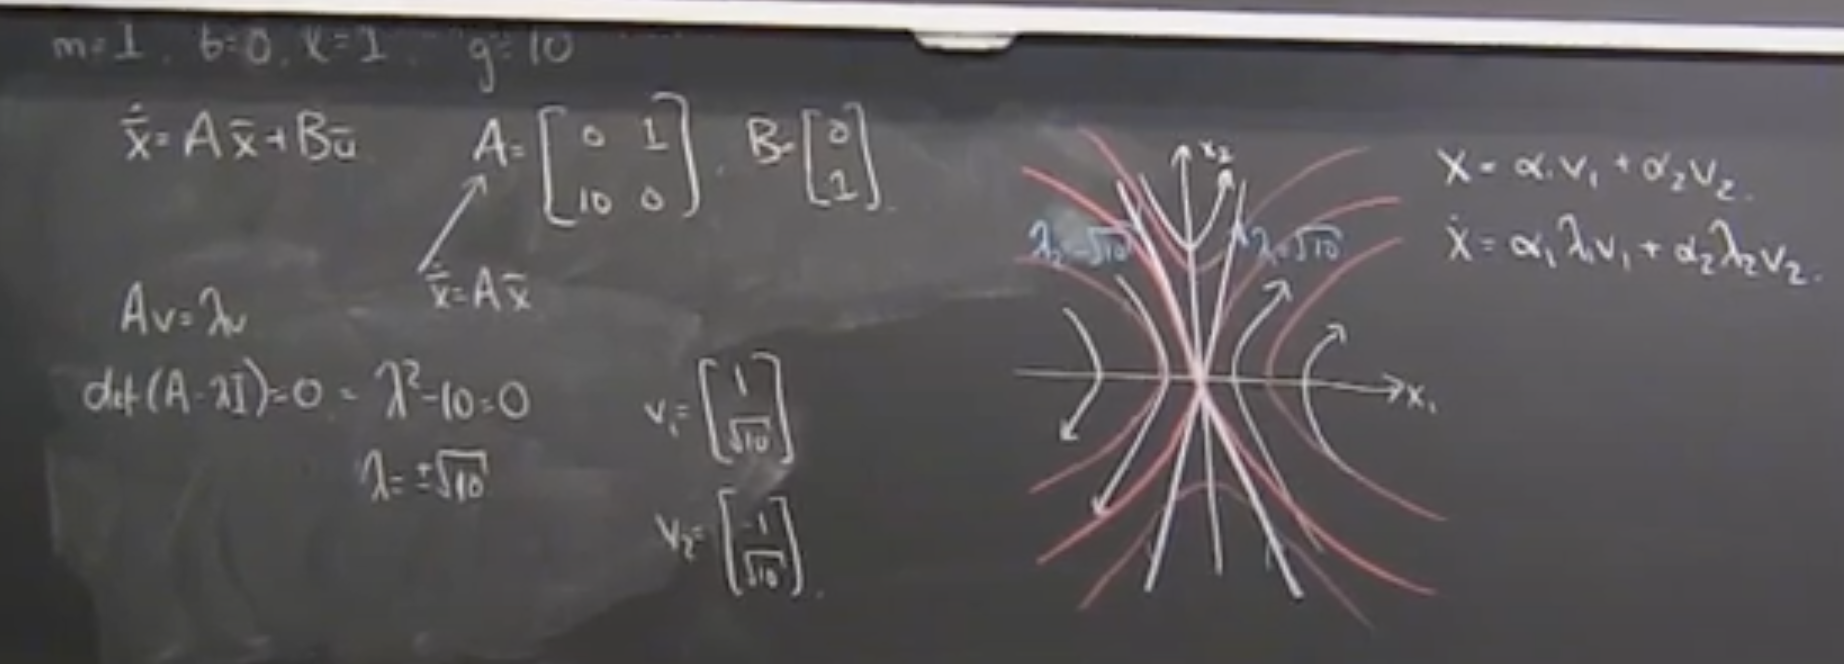 m=1, b=0, l=1, g=10
ẋ̄=Ax̄+Bū A=[0 1; 10 0], B=[0; 1].
ẋ̄=Ax̄
Av=λv
det(A-λI)=0 = λ²-10=0
λ=±√10
v₁=[1; √10]
v₂=[-1; √10].
x₂
λ₂=-√10
λ₁=√10
x₁
x=α₁v₁+α₂v₂.
ẋ=α₁λ₁v₁+α₂λ₂v₂.